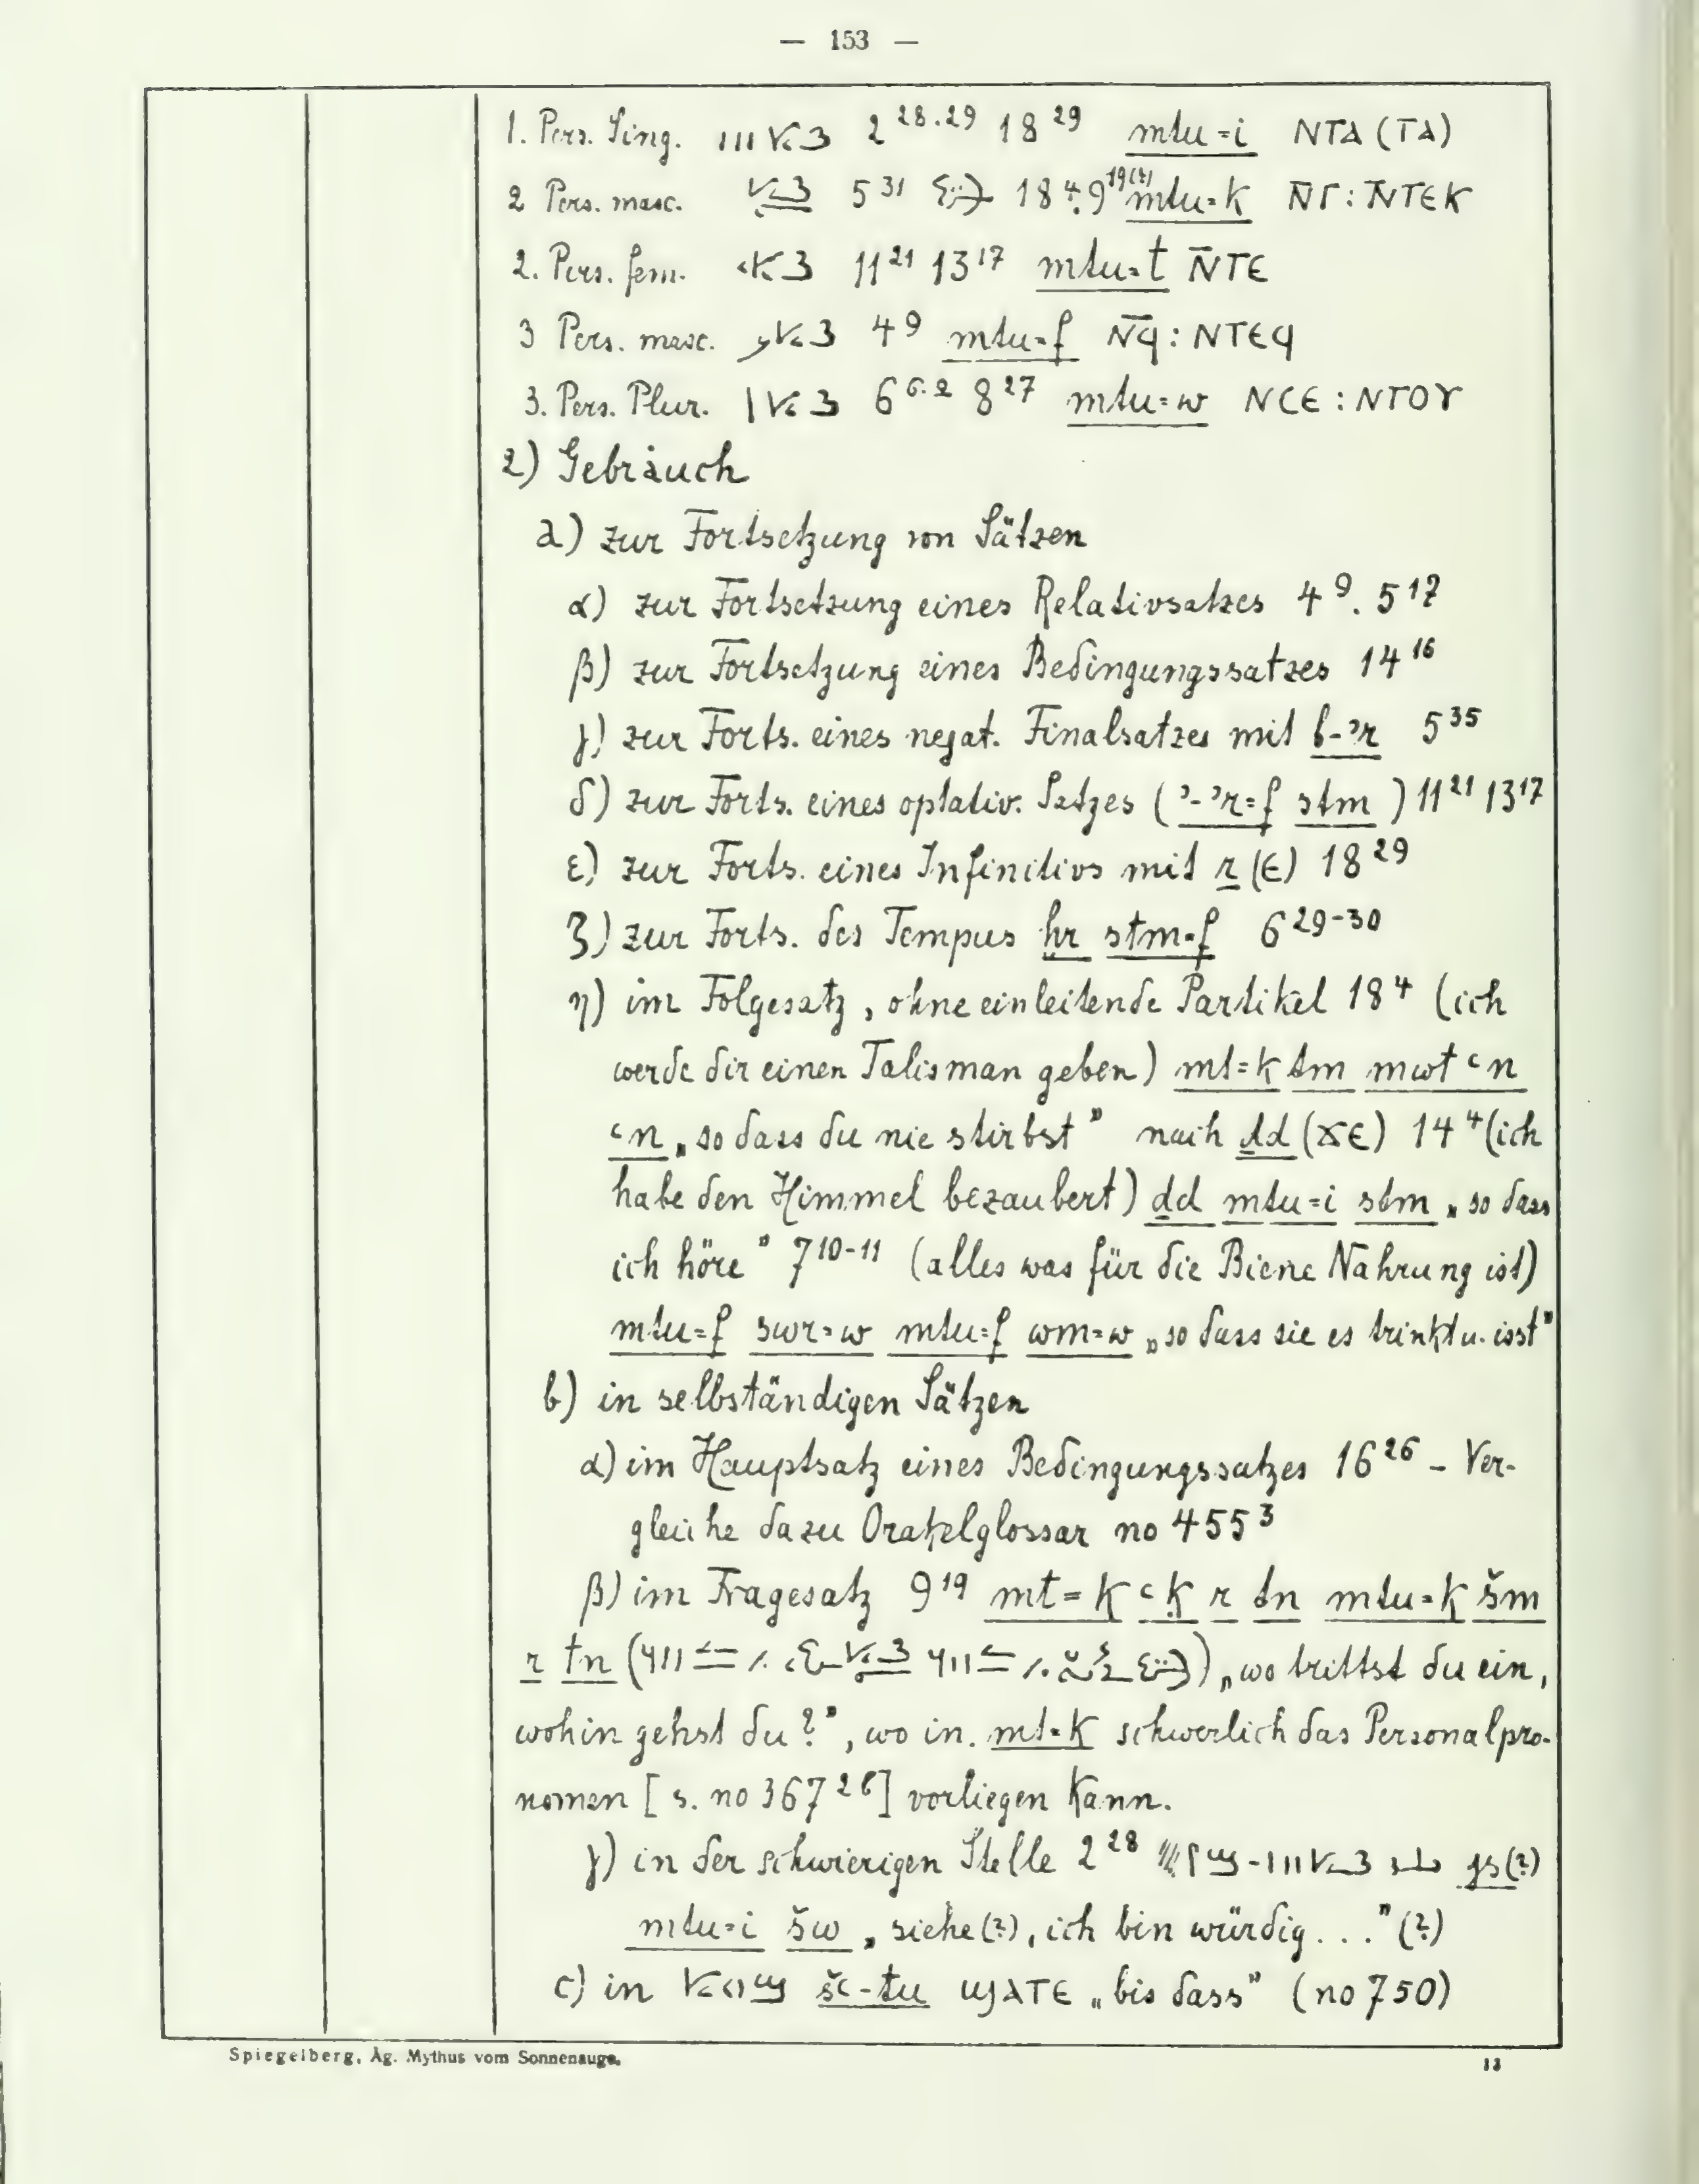 — 153 —
1. Pers. Sing. 2 28.29 18 29 mtu=i ⲚⲦⲀ (ⲦⲀ)
2 Pers. masc. 5 31 18 4.9 19(?) mtu=k Ⲛ̄Ⲅ : Ⲛ̄ⲦⲈⲔ
2. Pers. fem. 11 21 13 17 mtu=t Ⲛ̄ⲦⲈ
3 Pers. masc. 4 9 mtu=f Ⲛ̄ϥ : ⲚⲦⲈϥ
3. Pers. Plur. 6 6.2 8 27 mtu=w ⲚⲤⲈ : ⲚⲦⲞⲨ
2) Gebrauch
a) zur Fortsetzung von Sätzen
α) zur Fortsetzung eines Relativsatzes 4 9. 5 17
β) zur Fortsetzung eines Bedingungssatzes 14 16
γ) zur Forts. eines negat. Finalsatzes mit b-ʾr 5 35
δ) zur Forts. eines optativ. Satzes (ʾ-ʾr=f stm) 11 21 13 17
ε) zur Forts. eines Infinitivs mit r (Ⲉ) 18 29
ζ) zur Forts. des Tempus ḫr stm=f 6 29-30
η) im Folgesatz, ohne einleitende Partikel 18 4 (ich
werde dir einen Talisman geben) mt=k tm mwt ʿn
ʿn „so dass du nie stirbst” nach ḏd (ϪⲈ) 14 4 (ich
habe den Himmel bezaubert) ḏd mtu=i stm „so dass
ich höre” 7 10-11 (alles was für die Biene Nahrung ist)
mtu=f swr=w mtu=f wm=w „so dass sie es trinkt u. isst”
b) in selbständigen Sätzen
α) im Hauptsatz eines Bedingungssatzes 16 26 – Ver-
gleiche dazu Orakelglossar no 455 3
β) im Fragesatz 9 19 mt=k ʿḳ r tn mtu=k šm
r tn „wo trittst du ein,
wohin gehst du?”, wo in mt=k schwerlich das Personalpro-
nomen [s. no 367] vorliegen kann.
γ) in der schwierigen Stelle 2 28 gs(?)
mtu=i šw „siehe(?), ich bin würdig...” (?)
c) in šʿ-tu ϢⲀⲦⲈ „bis dass” (no 750)
Spiegelberg, Äg. Mythus vom Sonnenauge.